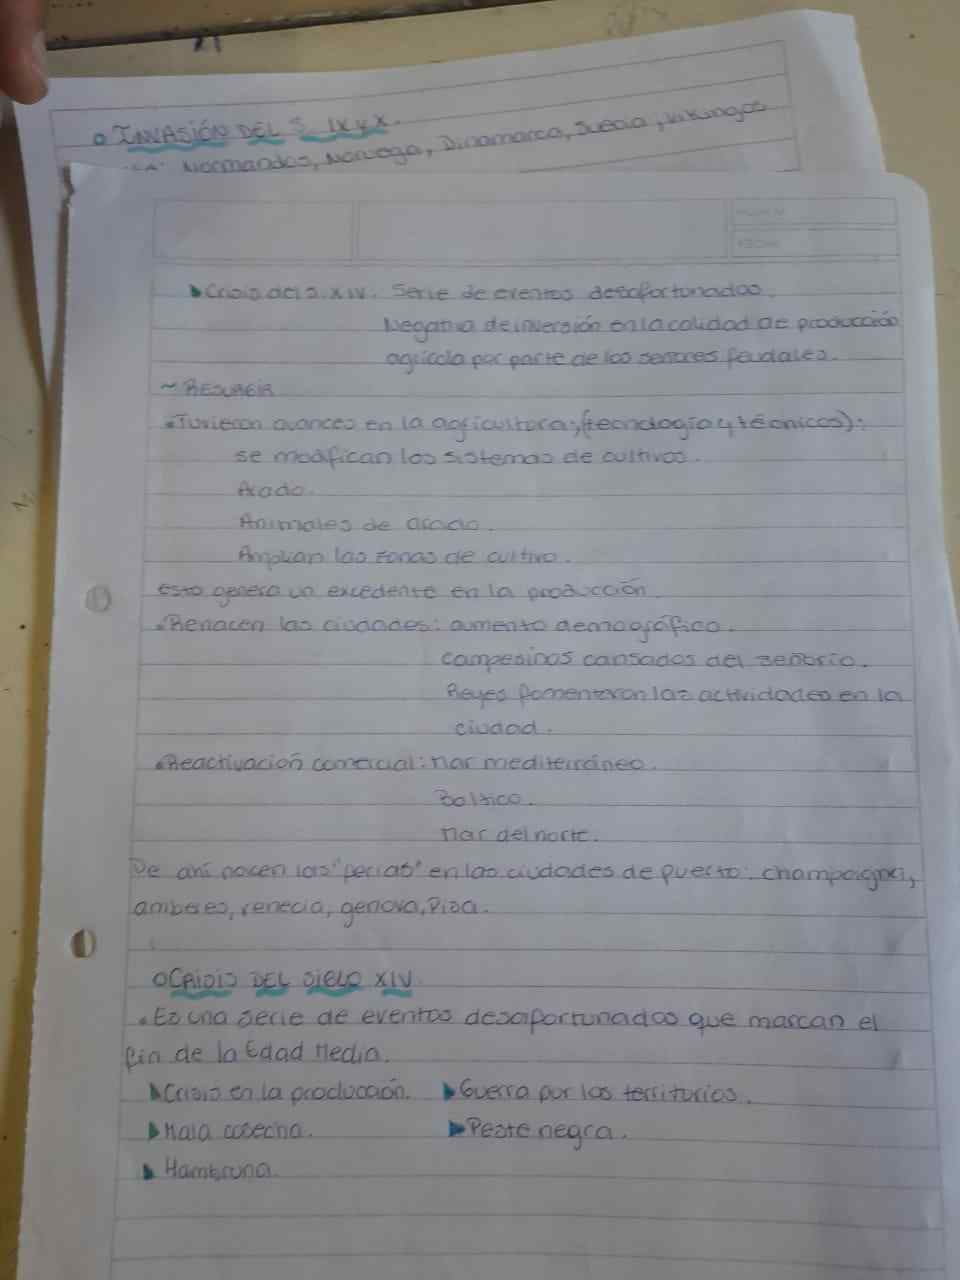 o INVASIÓN DEL S. IX y X.
Normandos, Noruega, Dinamarca, Suecia, Vikingos
Crisis del s. XIV. Serie de eventos desafortunados.
Negativa de inversión en la calidad de producción
agrícola por parte de los señores feudales.
~ RESURGIR
• Tuvieron avances en la agricultura; (tecnología y técnicos):
se modifican los sistemas de cultivos.
Arado.
Animales de arado.
Amplian las zonas de cultivo.
esto genera un excedente en la producción.
• Renacen las ciudades: aumento demográfico.
campesinos cansados del señorio.
Reyes fomentaron las actividades en la
ciudad.
• Reactivación comercial: mar mediterráneo.
Baltico.
mar del norte.
De ahí nacen las "ferias" en las ciudades de puerto: champaigna,
amberes, venecia, genova, Pisa.
o CRISIS DEL SIGLO XIV.
• Es una serie de eventos desafortunados que marcan el
fin de la Edad Media.
Crisis en la producción. Guerra por los territorios.
Mala cosecha. Peste negra.
Hambruna.